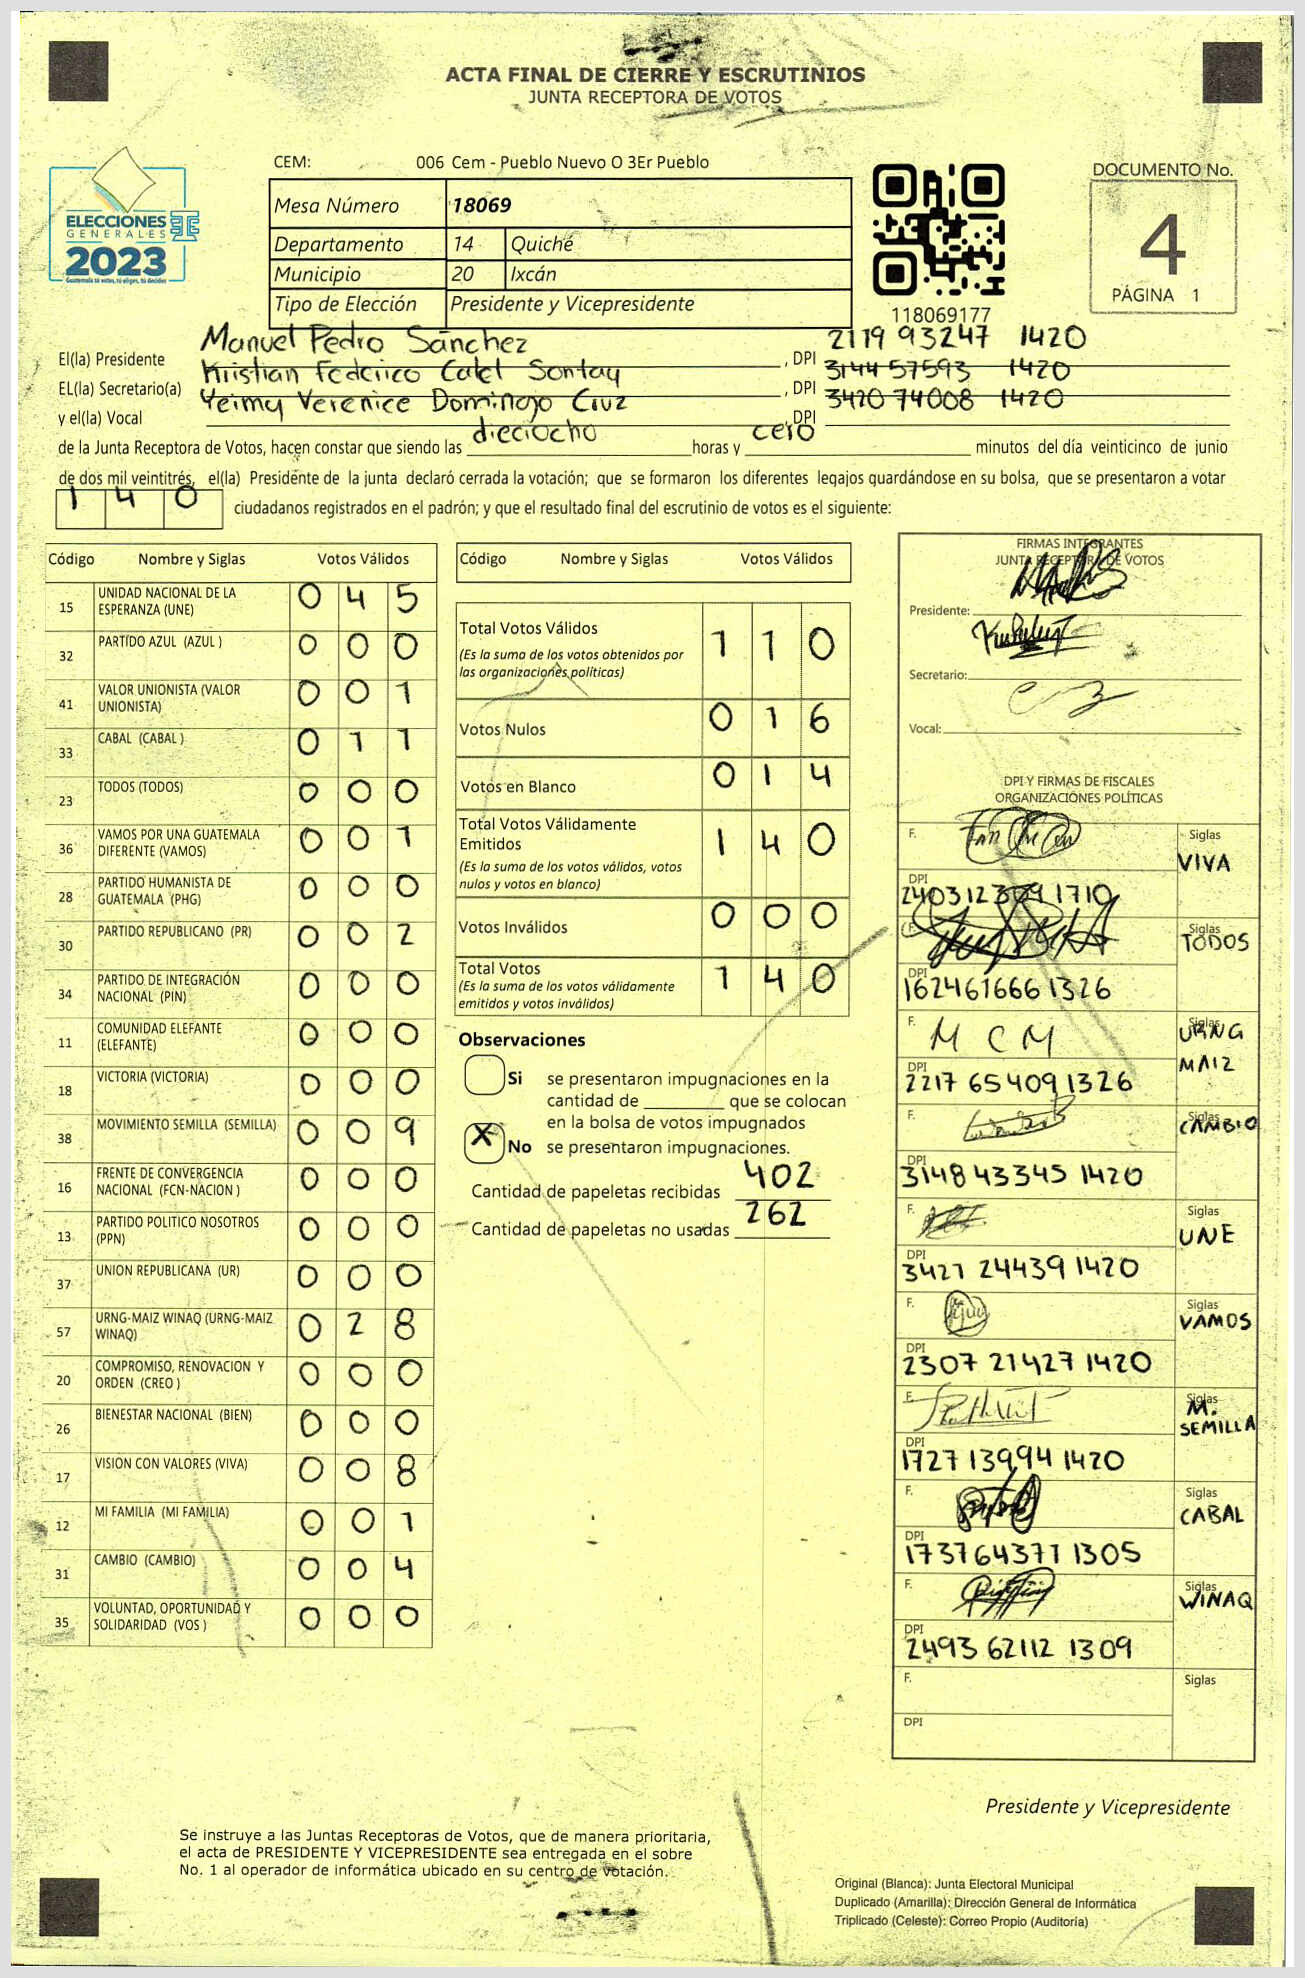 ACTA FINAL DE CIERRE Y ESCRUTINIOS
JUNTA RECEPTORA DE VOTOS
ELECCIONES
GENERALES
2023
Guatemala tú votas, tú eliges, tú decides
CEM: 006 Cem - Pueblo Nuevo O 3Er Pueblo
Mesa Número 18069
Departamento 14 Quiché
Municipio 20 Ixcán
Tipo de Elección Presidente y Vicepresidente
118069177
DOCUMENTO No.
4
PÁGINA 1
El(la) Presidente Manuel Pedro Sánchez , DPI 2119 93247 1420
EL(la) Secretario(a) Kristian Federico Calel Sontay , DPI 3144 57593 1420
y el(la) Vocal Yeimy Verenice Domingo Cruz DPI 3420 74008 1420
de la Junta Receptora de Votos, hacen constar que siendo las dieciocho horas y cero minutos del día veinticinco de junio
de dos mil veintitrés, el(la) Presidente de la junta declaró cerrada la votación; que se formaron los diferentes legajos guardándose en su bolsa, que se presentaron a votar
140 ciudadanos registrados en el padrón; y que el resultado final del escrutinio de votos es el siguiente:
Código Nombre y Siglas Votos Válidos
15 UNIDAD NACIONAL DE LA ESPERANZA (UNE) 0 4 5
32 PARTIDO AZUL (AZUL ) 0 0 0
41 VALOR UNIONISTA (VALOR UNIONISTA) 0 0 1
33 CABAL (CABAL ) 0 1 1
23 TODOS (TODOS) 0 0 0
36 VAMOS POR UNA GUATEMALA DIFERENTE (VAMOS) 0 0 1
28 PARTIDO HUMANISTA DE GUATEMALA (PHG) 0 0 0
30 PARTIDO REPUBLICANO (PR) 0 0 2
34 PARTIDO DE INTEGRACIÓN NACIONAL (PIN) 0 0 0
11 COMUNIDAD ELEFANTE (ELEFANTE) 0 0 0
18 VICTORIA (VICTORIA) 0 0 0
38 MOVIMIENTO SEMILLA (SEMILLA) 0 0 9
16 FRENTE DE CONVERGENCIA NACIONAL (FCN-NACION ) 0 0 0
13 PARTIDO POLITICO NOSOTROS (PPN) 0 0 0
37 UNION REPUBLICANA (UR) 0 0 0
57 URNG-MAIZ WINAQ (URNG-MAIZ WINAQ) 0 2 8
20 COMPROMISO, RENOVACION Y ORDEN (CREO ) 0 0 0
26 BIENESTAR NACIONAL (BIEN) 0 0 0
17 VISION CON VALORES (VIVA) 0 0 8
12 MI FAMILIA (MI FAMILIA) 0 0 1
31 CAMBIO (CAMBIO) 0 0 4
35 VOLUNTAD, OPORTUNIDAD Y SOLIDARIDAD (VOS ) 0 0 0
Código Nombre y Siglas Votos Válidos
Total Votos Válidos 1 1 0
(Es la suma de los votos obtenidos por
las organizaciones políticas)
Votos Nulos 0 1 6
Votos en Blanco 0 1 4
Total Votos Válidamente
Emitidos 1 4 0
(Es la suma de los votos válidos, votos
nulos y votos en blanco)
Votos Inválidos 0 0 0
Total Votos 1 4 0
(Es la suma de los votos válidamente
emitidos y votos inválidos)
Observaciones
Si se presentaron impugnaciones en la
cantidad de ________ que se colocan
en la bolsa de votos impugnados
X No se presentaron impugnaciones.
Cantidad de papeletas recibidas 402
Cantidad de papeletas no usadas 262
FIRMAS INTEGRANTES
JUNTA RECEPTORA DE VOTOS
Presidente:
Secretario:
Vocal:
DPI Y FIRMAS DE FISCALES
ORGANIZACIONES POLÍTICAS
F. Siglas
VIVA
DPI
F. Siglas
TODOS
DPI
162461666 1326
F. M C M Siglas
URNG
MAIZ
DPI
2217 65409 1326
F. Siglas
CAMBIO
DPI
3148 43345 1420
F. Siglas
UNE
DPI
3421 24439 1420
F. Siglas
VAMOS
DPI
2307 21427 1420
F. Siglas
M.
SEMILLA
DPI
1727 13994 1420
F. Siglas
CABAL
DPI
173764371 1305
F. Siglas
WINAQ
DPI
2493 62112 1309
F. Siglas
DPI
Presidente y Vicepresidente
Se instruye a las Juntas Receptoras de Votos, que de manera prioritaria,
el acta de PRESIDENTE Y VICEPRESIDENTE sea entregada en el sobre
No. 1 al operador de informática ubicado en su centro de votación.
Original (Blanca): Junta Electoral Municipal
Duplicado (Amarilla): Dirección General de Informática
Triplicado (Celeste): Correo Propio (Auditoría)